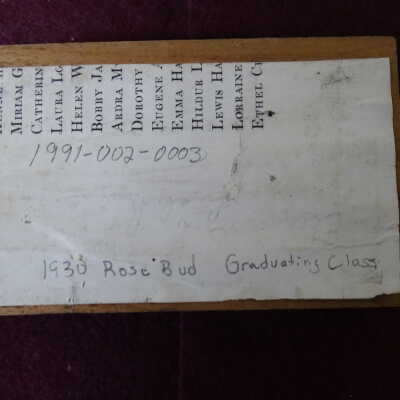 MIRIAM G
CATHERIN
LAURA LO
HELEN W
BOBBY JA
ARDRA M
DOROTHY
EUGENE A
EMMA HA
HILDUR L
LEWIS HA
LORRAINE
ETHEL C
1991-002-0003
1930 Rose Bud Graduating Class